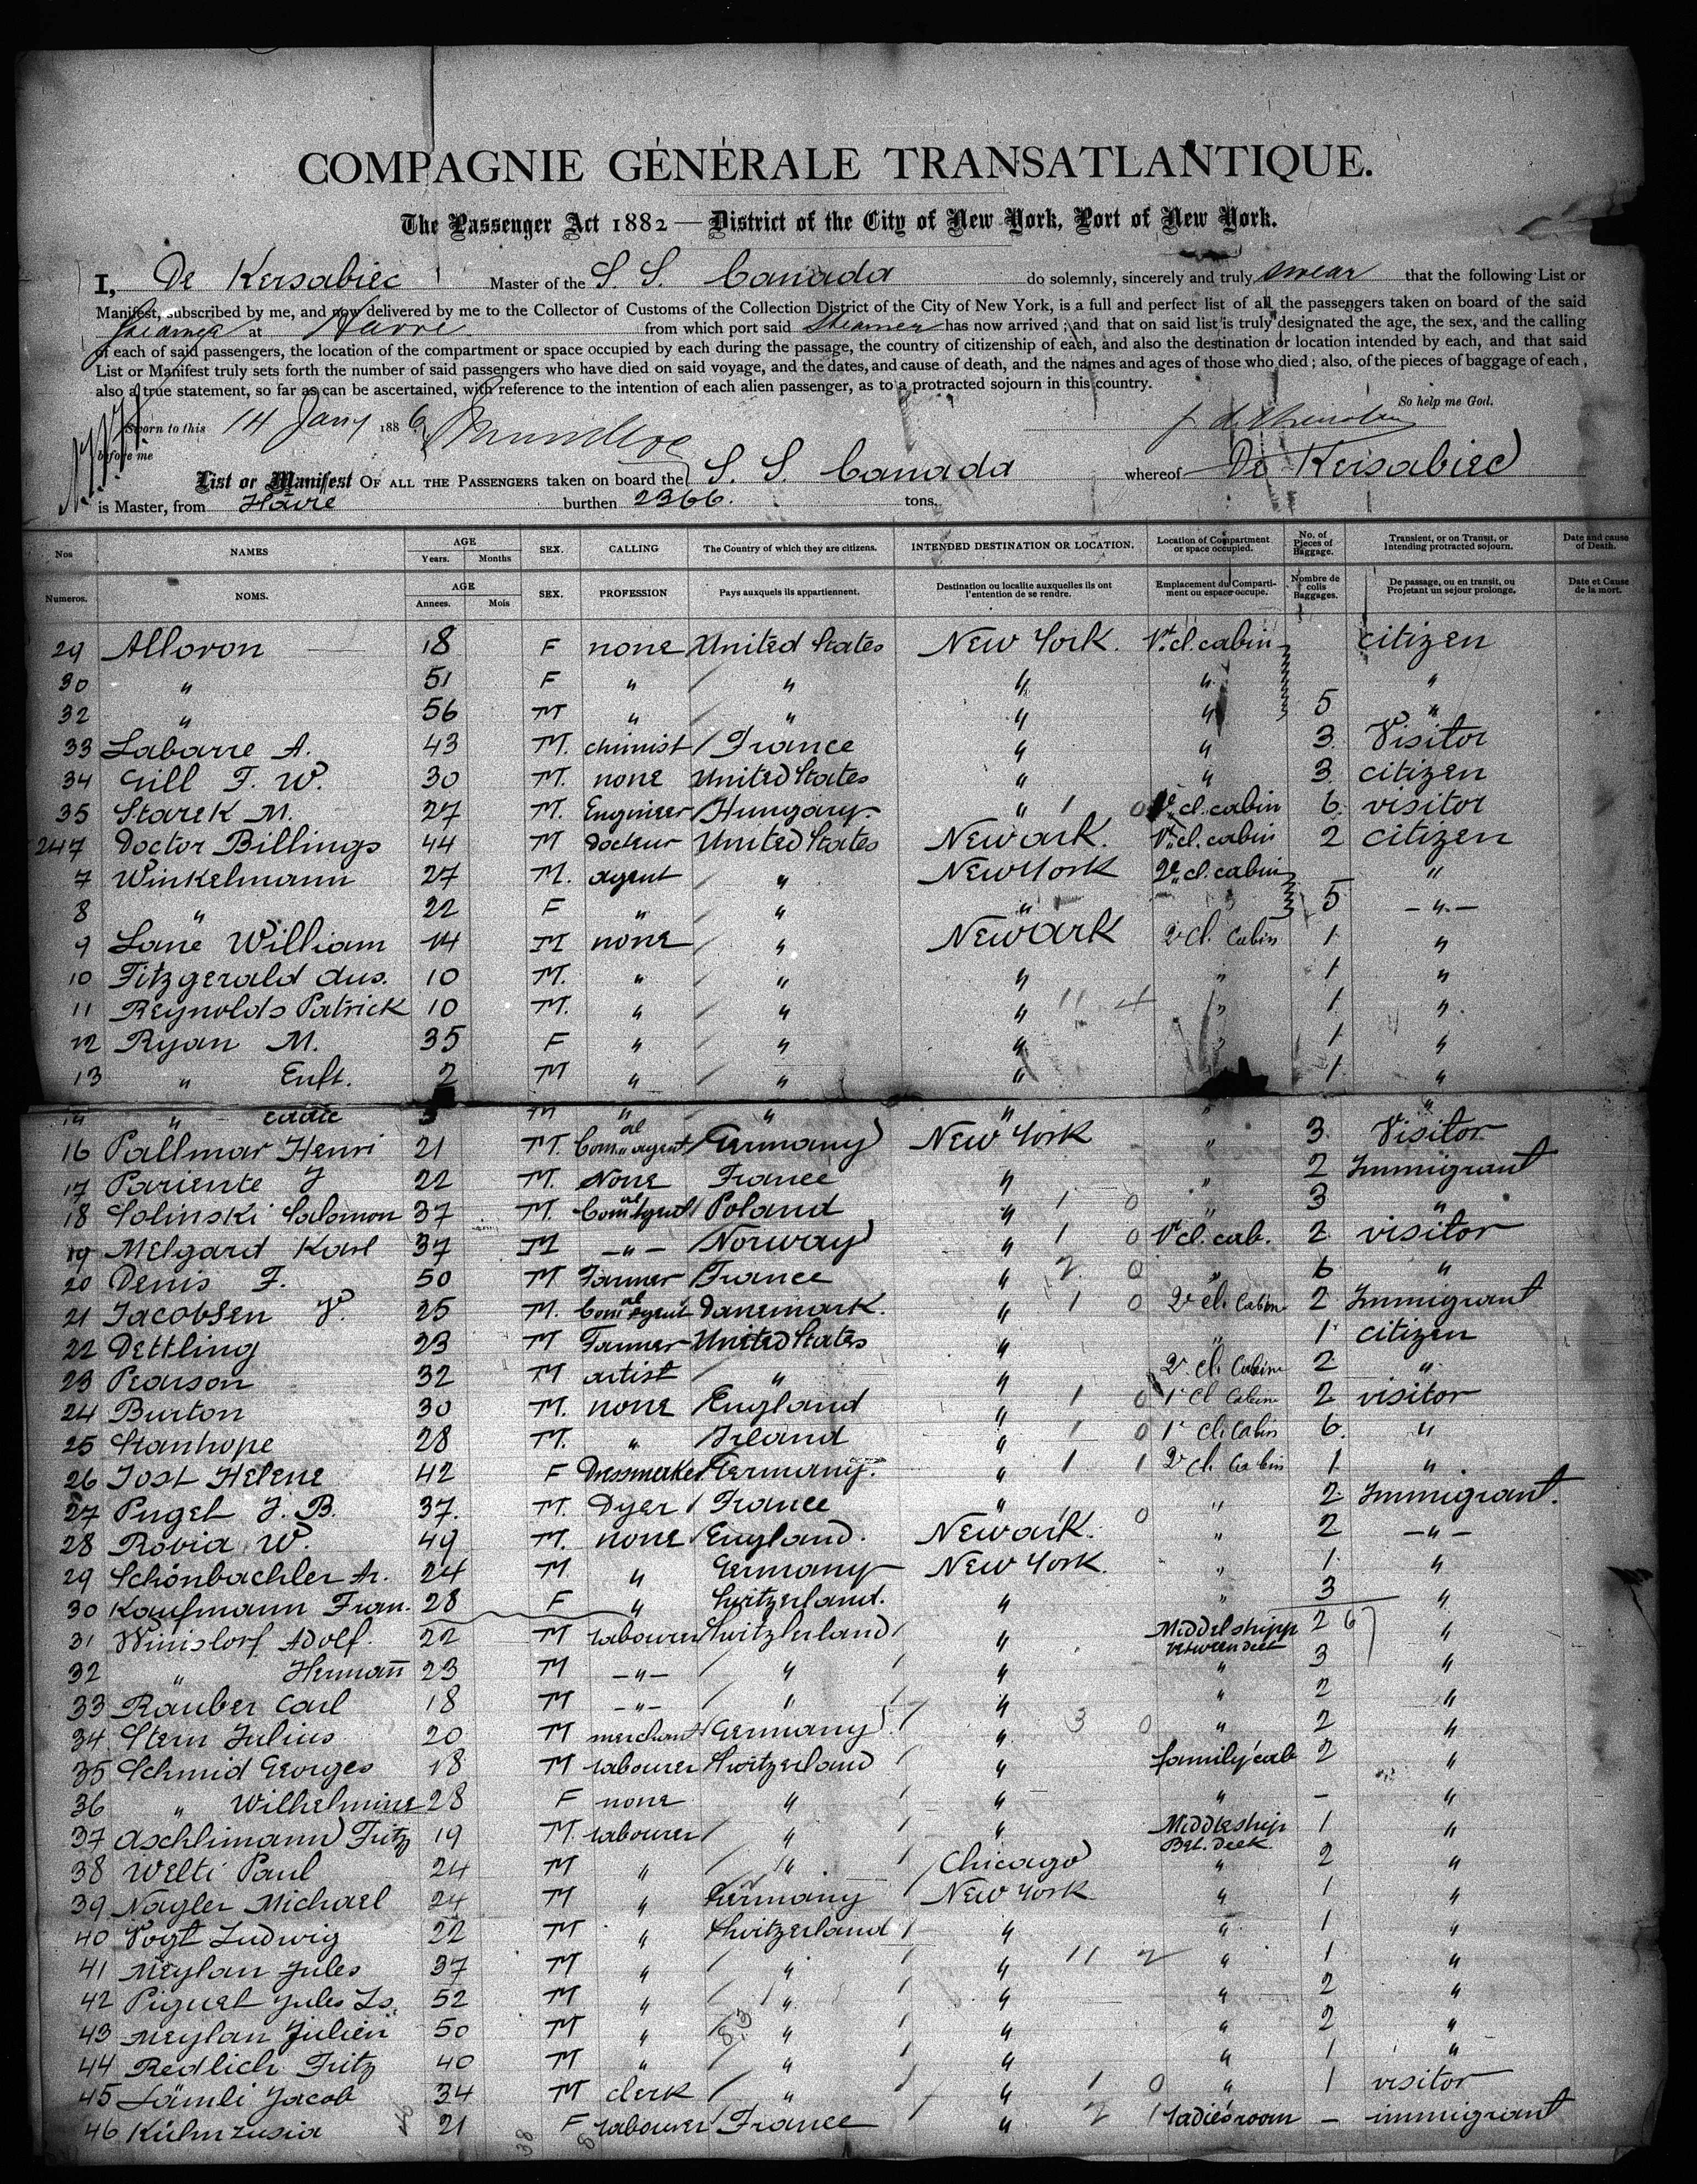 COMPAGNIE GÉNÉRALE TRANSATLANTIQUE.
The Passenger Act 1882 — District of the City of New York, Port of New York.
I, De Kersabiec Master of the S S. Canada do solemnly, sincerely and truly swear that the following List or
Manifest, subscribed by me, and now delivered by me to the Collector of Customs of the Collection District of the City of New York, is a full and perfect list of all the passengers taken on board of the said
steamer at Havre from which port said steamer has now arrived; and that on said list is truly designated the age, the sex, and the calling
of each of said passengers, the location of the compartment or space occupied by each during the passage, the country of citizenship of each, and also the destination or location intended by each, and that said
List or Manifest truly sets forth the number of said passengers who have died on said voyage, and the dates, and cause of death, and the names and ages of those who died; also, of the pieces of baggage of each,
also a true statement, so far as can be ascertained, with reference to the intention of each alien passenger, as to a protracted sojourn in this country.
So help me God.
Sworn to this 14 Jany 1886
before me
List or Manifest OF ALL THE PASSENGERS taken on board the S. S. Canada whereof De Kersabiec
is Master, from Hâvre burthen 2366. tons.
Nos NAMES AGE Years. Months SEX. CALLING The Country of which they are citizens. INTENDED DESTINATION OR LOCATION. Location of Compartment or space occupied. No. of Pieces of Baggage. Transient, or on Transit, or Intending protracted sojourn. Date and cause of Death.
Numeros. NOMS. AGE Annees. Mois SEX. PROFESSION Pays auxquels ils appartiennent. Destination ou localite auxquelles ils ont l'entention de se rendre. Emplacement du Compartiment ou espace occupe. Nombre de colis Baggages. De passage, ou en transit, ou Projetant un sejour prolonge. Date et Cause de la mort.
29 Alloron 18 F none United States New York. 1st cl. cabin citizen
30 " 51 F " " " " "
32 " 56 M " " " " 5 "
33 Labarre A. 43 M. chimist France " " 3. Visitor
34 Gill F. W. 30 M. none United States " " 3. citizen
35 Starek M. 27 M. Engineer Hungary. " 1 0 cl. cabin 6. visitor
247 Doctor Billings 44 M Docteur United States Newark. 1st cl. cabin 2 citizen
7 Winkelmann 27 M. agent " New York 2e cl. cabin "
8 " 22 F " " " 5 — " —
9 Lane William 14 M none " Newark 2e Cl. Cabin 1 "
10 Fitzgerald Aus. 10 M. " " " " 1 "
11 Reynolds Patrick 10 M. " " " 11 4 " 1 "
12 Ryan M. 35 F " " " " 1 "
13 " Enft. 2 M " " " 1 "
14 " M " " " " "
16 Pallmar Henri 21 M. Comal agent Germany New York " 3 Visitor
17 Pariente J 22 M. None France " " 2 Immigrant
18 Solinski Salomon 37 M. Comal agent Poland " 1 0 " 3 "
19 Melgard Karl 37 M — " — Norway " 1 0 1st cl. cab. 2 visitor
20 Denis F. 50 M Farmer France " 2 0 " 6 "
21 Jacobsen 25 M. Comal agent Danemark. " 1 0 2e cl. Cabin 2 Immigrant
22 Dettling 23 M Farmer United States " " 1 citizen
23 Pearson 32 M artist " " 2e cl. Cabin 2 "
24 Burton 30 M. none England " 1 0 1r Cl Cabin 2 visitor
25 Stanhope 28 M. " Irland " 1 0 1r Cl. Cabin 6. "
26 Jost Helene 42 F Dressmaker Germany. " 1 1 2e cl. Cabin 1 "
27 Puget J. B. 37. M. Dyer France " 1 0 " 2 Immigrant.
28 Rovia W. 49 M. none England. Newark. " 2 — " —
29 Schönbachler A. 24 M " Germany New York. " 1. "
30 Kaufmann Fran. 28 F " Switzerland. " " 3 "
31 Winislorf Adolf. 22 M labourer Switzherland " Middelshipp between deck 2 6 "
32 " Hermann 23 M — " — " " " 3 "
33 Rauber Carl 18 M — " — " " " 2 "
34 Stern Julius 20 M merchant Germany " 3 0 " 2 "
35 Schmid Georges 18 M labourer Switzerland " family cab 2 "
36 " Wilhelmine 28 F none " " " – "
37 Aschlimann Fritz 19 M. labourer " " Middleship Bet. Deck 1 "
38 Welti Paul 24 M " " Chicago " 2 "
39 Nagler Michael 24 M " Germany New York " 1 "
40 Vogt Ludwig 22 M " Switzerland " " 1 "
41 Meylan Jules 37 M " " " 11 2 " 1 "
42 Piguet Jules Ls. 52 M " " " " 2 "
43 Meylan Julien 50 M " " " " 2 "
44 Redlich Fritz 40 M " " " " 1 "
45 Lämli Jacob 34 M clerk " " 1 0 " 1 visitor
46 Kuhn 21 F labourer France " 2 1 ladies room – immigrant